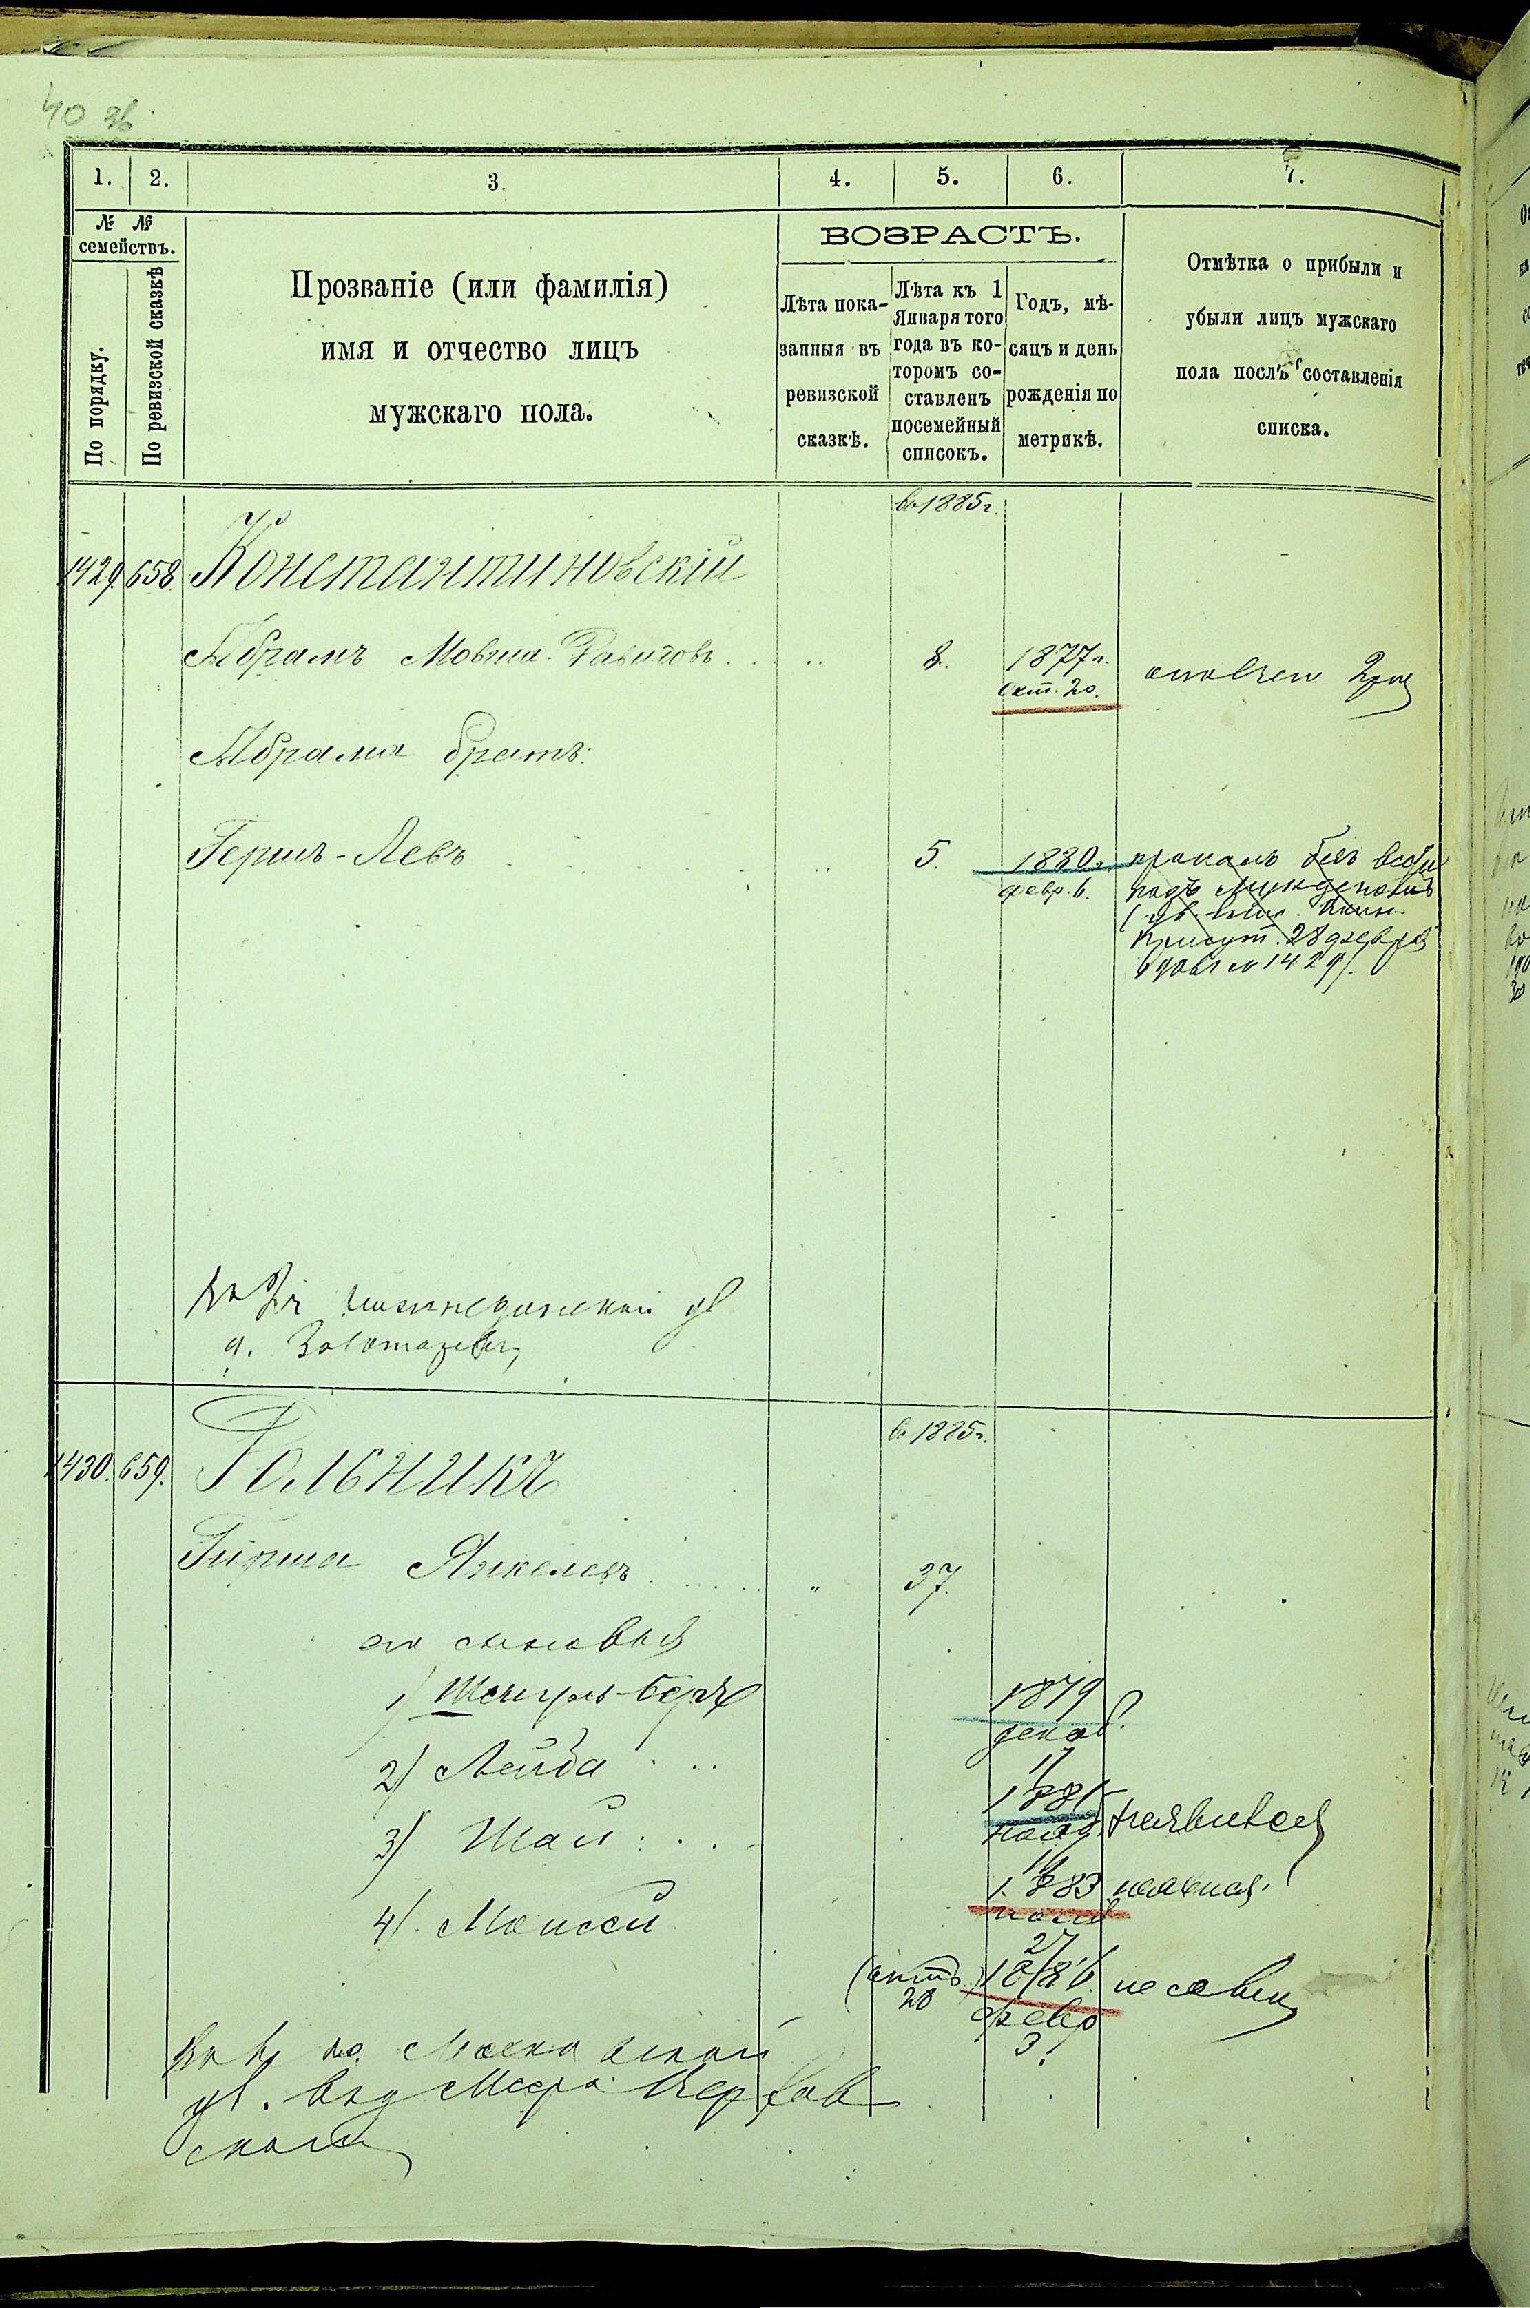 40 зв.
1. 2. 3. 4. 5. 6. 7.
№ №
семействъ.
По порядку.
По ревизской сказкѣ
Прозваніе (или фамилія)
имя и отчество лицъ
мужскаго пола.
ВОЗРАСТЪ.
Лѣта пока-
занныя въ
ревизской
сказкѣ.
Лѣта къ 1
Января того
года въ ко-
торомъ со-
ставленъ
посемейный
списокъ.
Годъ, мѣ-
сяцъ и день
рожденія по
метрикѣ.
Отмѣтка о прибыли и
убыли лицъ мужскаго
пола послѣ составленія
списка.
въ 1885 г.
1429. 658. Константиновскій
Абрамъ Мовша 8. 1877 г.
Окт. 20.
Абрама братъ:
Гершъ-Левъ 5. 1880 г. пропалъ безъ вести
февр. 6. подъ Мукденомъ
28 февраля
1429).
ул
д. Золотарев
въ 1885 г.
1430. 659. Гольникъ
Гирша Янкелевъ 37.
его сыновья
1) Шмуль-Беръ 1879
декаб.
17
2) Лейба 1881 не явился
нояб.
3) Шая 1883
27
4) Моисей (октъ 20) 1886
февр
3.
по Московской
ул. Меера
ской